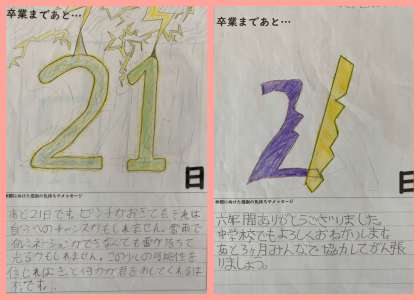 卒業まであと…
21
日
仲間にむけた感謝の気持ちやメッセージ
あと21日です。ピンチがおきてもそれは
自分へのチャンスかもしれません。雷雨で
イルミネーションができなくても雷が落ちて
光るかもしれません。
信じれば きっと
れです。
卒業まであと…
21
日
仲間にむけた感謝の気持ちやメッセージ
六年間ありがとうございました。
中学校でもよろしくおねがいします。
あと3ヶ月みんなで協力してがん張
りましょう。